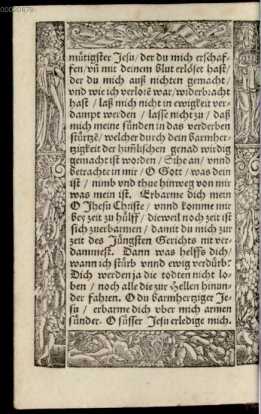 mütigster Jesu/ der du mich erschaf-
fen/ vñ mit deinem blut erlöset hast/
der du mich auß nichten gemacht/
vnd wie ich verlorē war/ widerbracht
hast/ laß mich nicht in ewigkeit ver-
dampt werden/ lasse nicht zu/ daß
mich meine sünden in das verderben
stürtzē/ welcher durch dein barmher-
tzigkeit der himlischen genad wirdig
gemacht ist worden/ Sihe an/ vnnd
betrachte in mir/ O Gott/ was dein
ist/ nimb vnd thue hinweg von mir
was mein ist. Erbarme dich mein
O Jhesu Christe/ vnnd komme mir
bey zeit zu hülff/ dieweil noch zeit ist
sich zuerbarmen/ damit du mich zur
zeit des Jüngsten Gerichts nit ver-
dammest. Dann was helffs dich/
wann ich stürb vnnd ewig verdürb?
Dich werden ja die todten nicht lo-
ben/ noch alle die zur Hellen hinun-
der fahren. O du barmhertziger Je-
su/ erbarme dich vber mich armen
sünder. O süsser Jesu erledige mich.